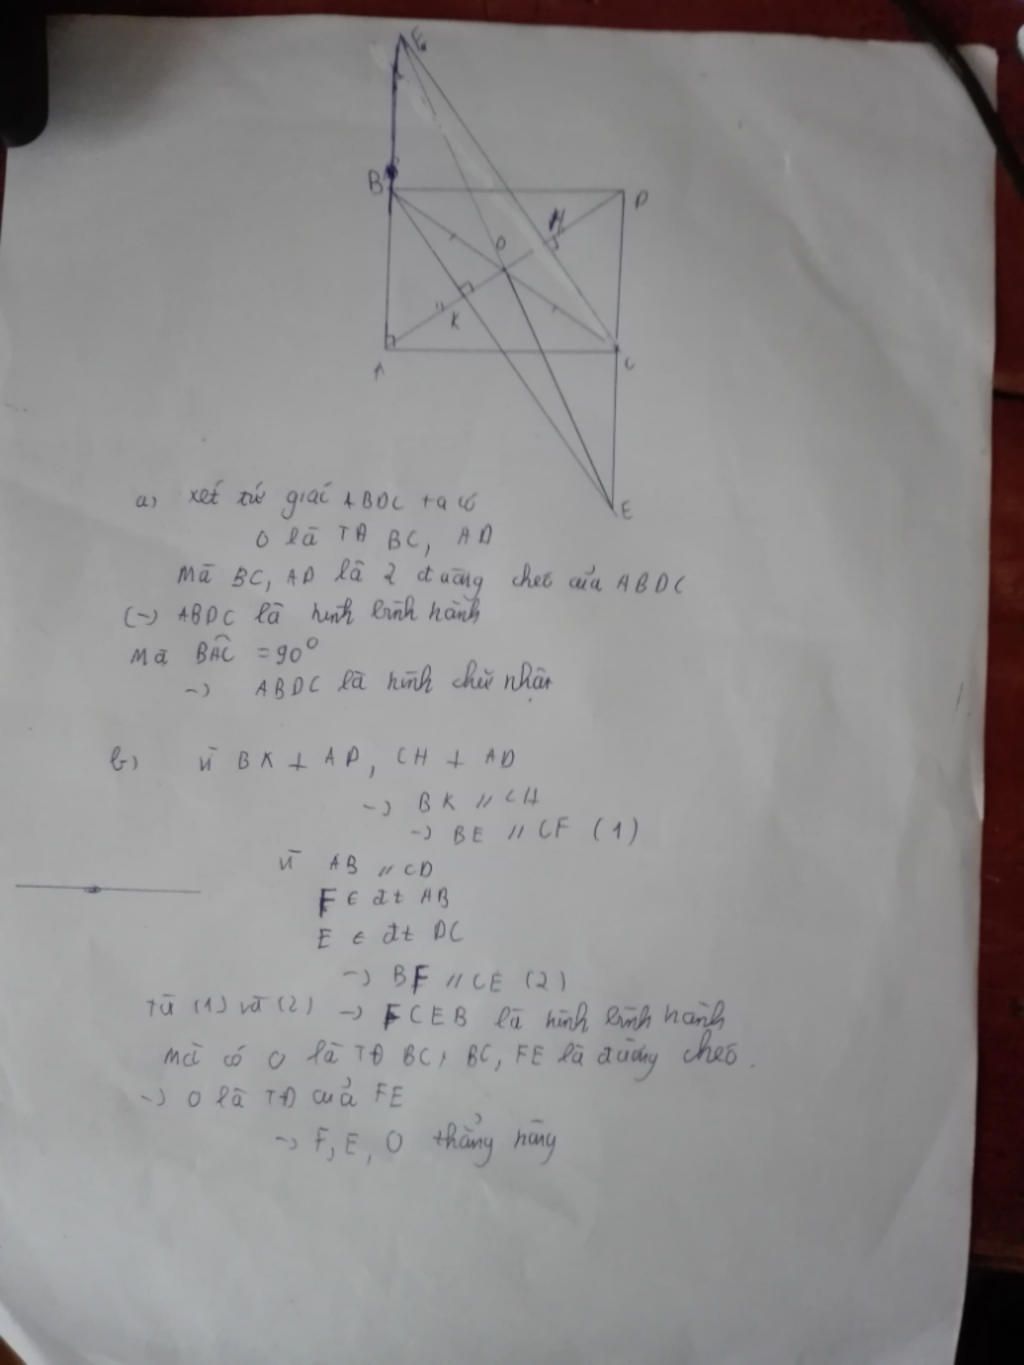 F
B
D
H
O
K
A
C
E
a) xét tứ giác ABDC ta có
O là TĐ BC, AD
Mà BC, AD là 2 đường chéo của ABDC
(-) ABDC là hình bình hành
Mà BAC = 90°
-) ABDC là hình chữ nhật
b) Vì BK ⊥ AD, CH ⊥ AD
-) BK // CH
-) BE // CF (1)
Vì AB // CD
F ∈ đt AB
E ∈ đt DC
-) BF // CE (2)
Từ (1) và (2) -) FCEB là hình bình hành
Mà có O là TĐ BC, BC, FE là đường chéo.
-) O là TĐ của FE
-) F, E, O thẳng hàng